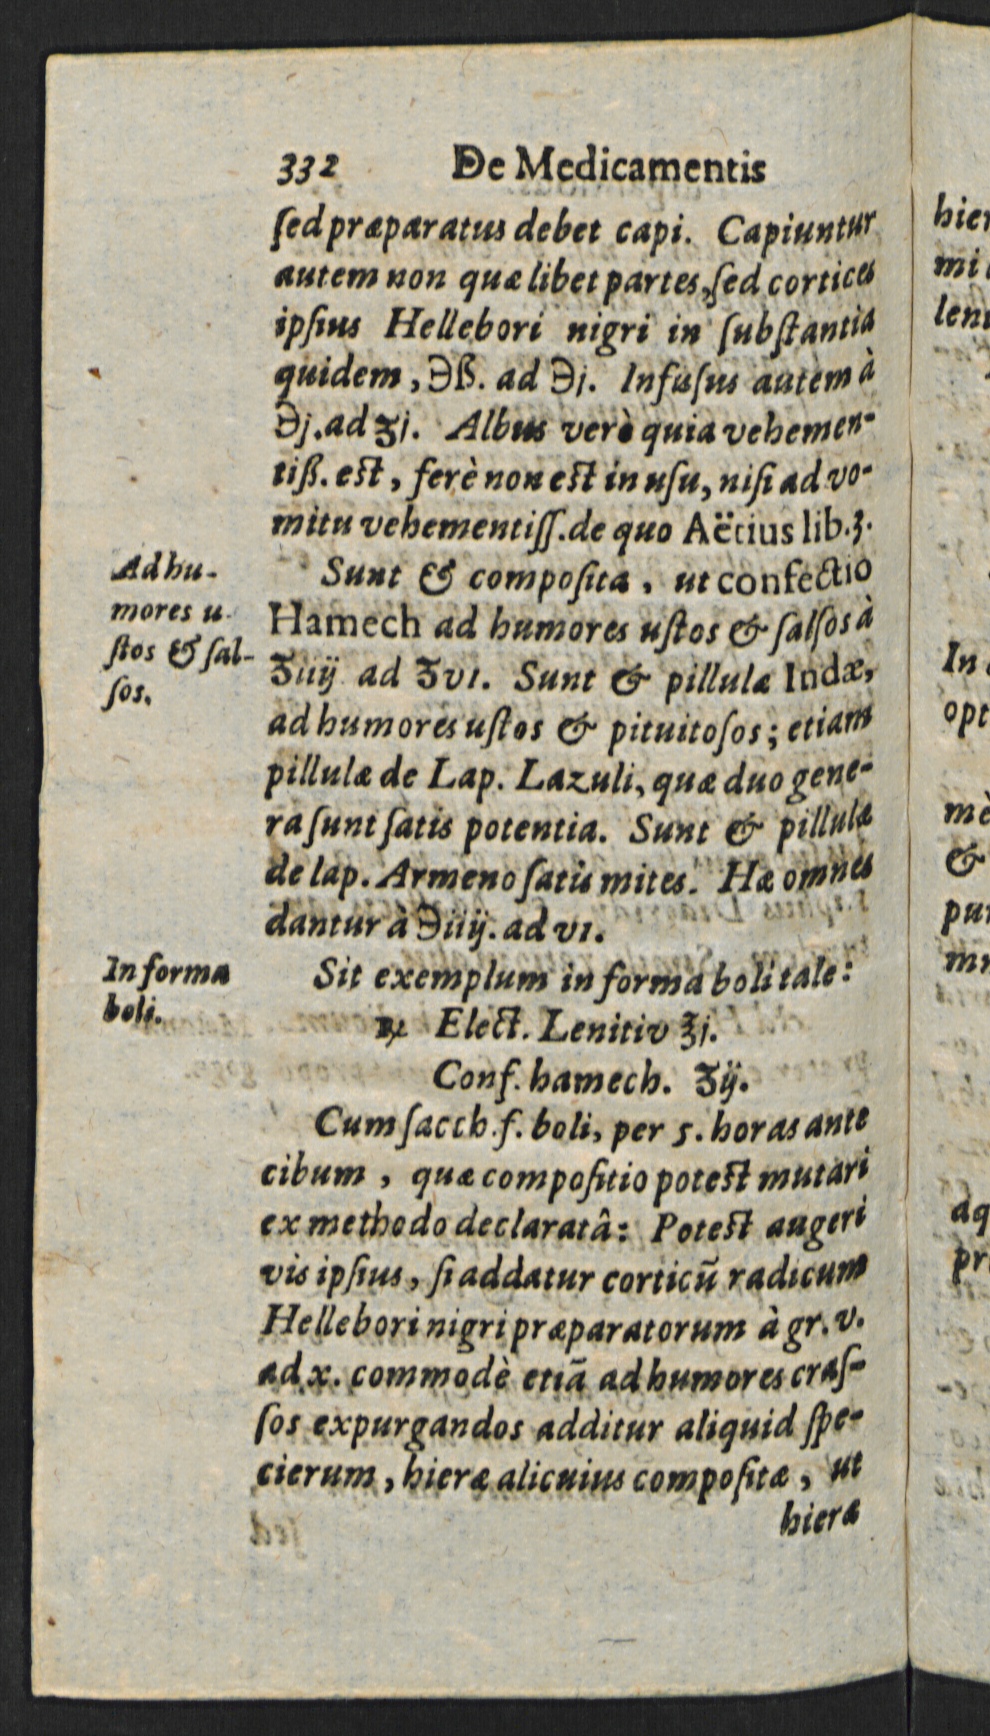 332 De Medicamentis
ſed præparatus debet capi. Capiuntur
autem non quælibet partes, ſed cortices
ipſius Hellebori nigri in ſubſtantia
quidem, ℈ß. ad ℈j. Infuſus autem à
℈j. ad ʒj. Albus verò quia vehemen-
tiß. eſt, ferè non eſt in uſu, niſi ad vo-
mitu vehementiſſ. de quo Aëtius lib. 3.
Ad hu-
mores u
ſtos & ſal-
ſos.
Sunt & compoſita, ut confectio
Hamech ad humores uſtos & ſalſos à
ʒiiij ad ʒvi. Sunt & pillulæ Indæ,
ad humores uſtos & pituitoſos; etiam
pillulæ de Lap. Lazuli, quæ duo gene-
ra ſunt ſatis potentia. Sunt & pillulæ
de lap. Armeno ſatis mites. Hæ omnes
dantur à ℈iiij. ad vi.
In forma
boli.
Sit exemplum in forma boli tale:
℞ Elect. Lenitiv ℥j.
Conf. hamech. ʒij.
Cum ſacch. f. boli, per 5. horas ante
cibum, quæ compoſitio poteſt mutari
ex methodo declaratâ: Poteſt augeri
vis ipſius, ſi addatur corticũ radicum
Hellebori nigri præparatorum à gr. v.
ad x. commodè etiã ad humores craſ-
ſos expurgandos additur aliquid ſpe-
cierum, hieræ alicuius compoſitæ, ut
hieræ
hier
mi
leni
In
opt
mè
&
pur
mn
aq
pr